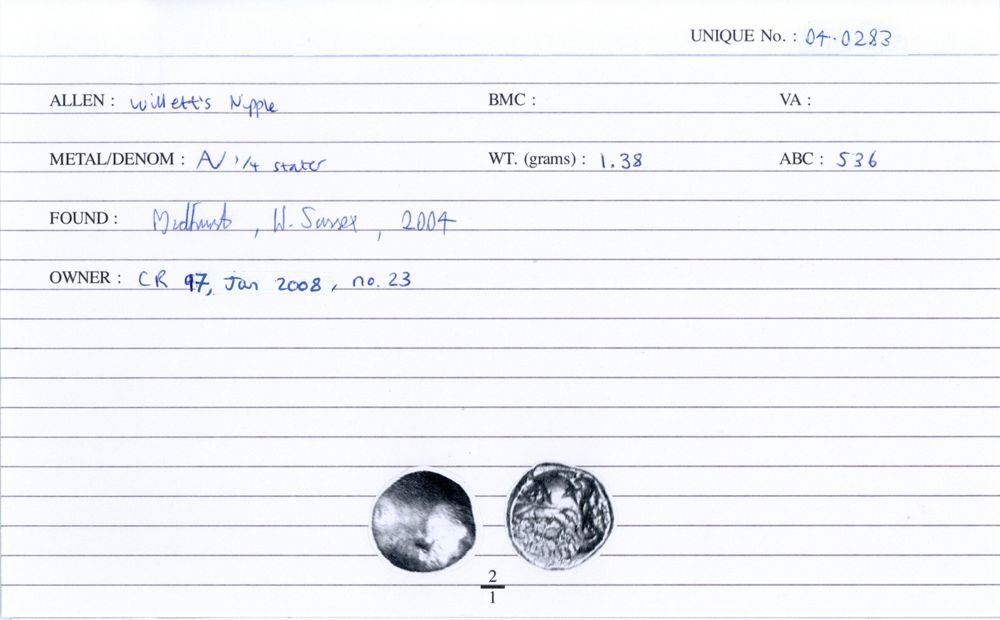 UNIQUE No. : 04.0283
ALLEN : Willett's Nipple BMC : VA :
METAL/DENOM : AV 1/4 stater WT. (grams) : 1.38 ABC : 536
FOUND : Midhurst, W. Sussex, 2004
OWNER : CR 97, Jan 2008, no. 23
2
1